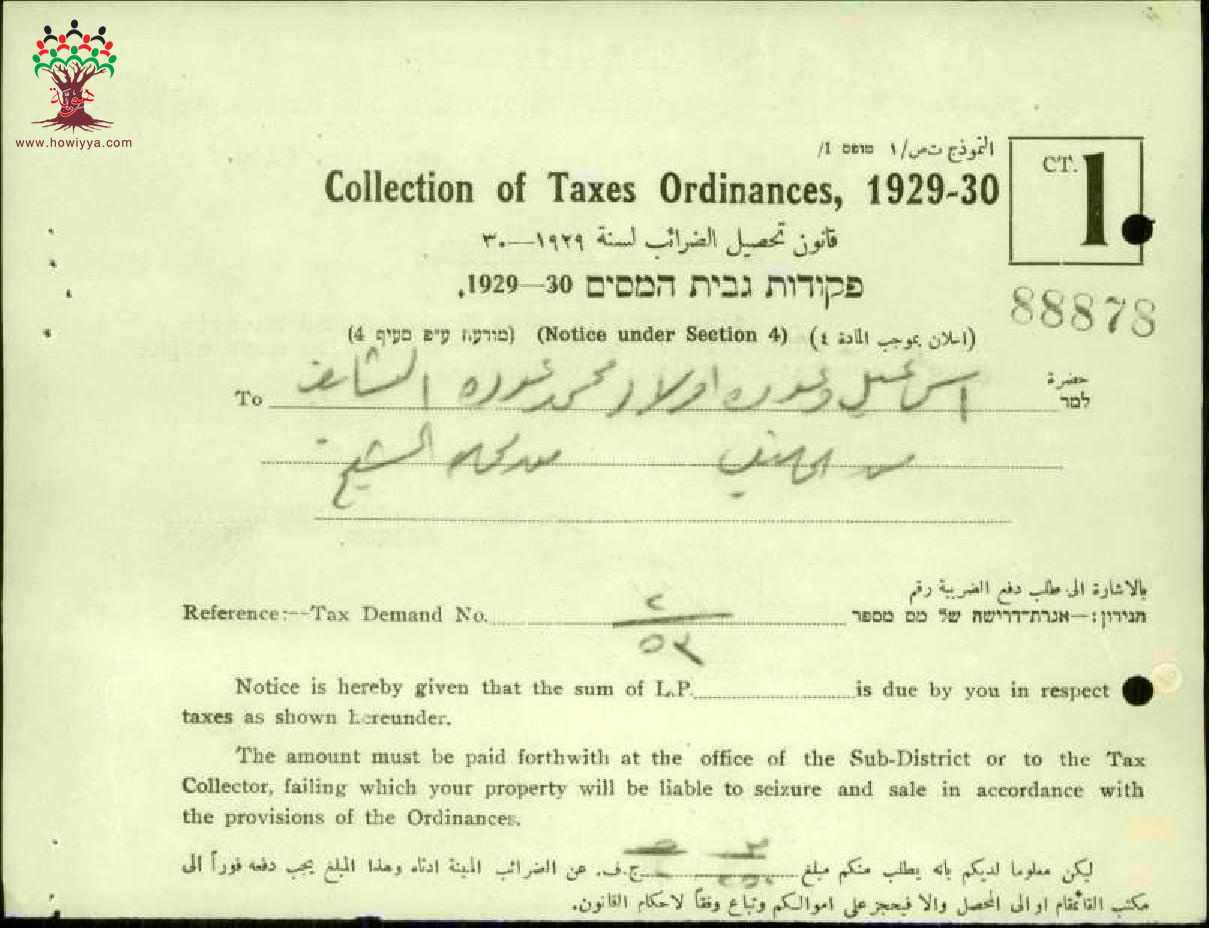 هوية
www.howiyya.com
النموذج ت ص/١ טופס 1/
CT. 1.
Collection of Taxes Ordinances, 1929-30
قانون تحصيل الضرائب لسنة ١٩٢٩—٣٠
פקודות גבית המסים 1929—30.
88878
(מודעה ע״פ סעיף 4) (Notice under Section 4) (اعلان بموجب المادة ٤)
حضرة
To اسماعيل وعوده اولاد محمد عوده למר
من
Reference:—Tax Demand No. ٢/٥٣
بالاشارة الى طلب دفع الضريبة رقم
הנידון:—אגרת־דרישה של מס מספר
Notice is hereby given that the sum of L.P. is due by you in respect
taxes as shown hereunder.
The amount must be paid forthwith at the office of the Sub-District or to the Tax
Collector, failing which your property will be liable to seizure and sale in accordance with
the provisions of the Ordinances.
ليكن معلوما لديكم بانه يطلب منكم مبلغ ج.ف. عن الضرائب المبينة ادناه وهذا المبلغ يجب دفعه فوراً الى
مكتب القائمقام او الى المحصل والا فيحجز على اموالكم وتباع وفقاً لاحكام القانون.